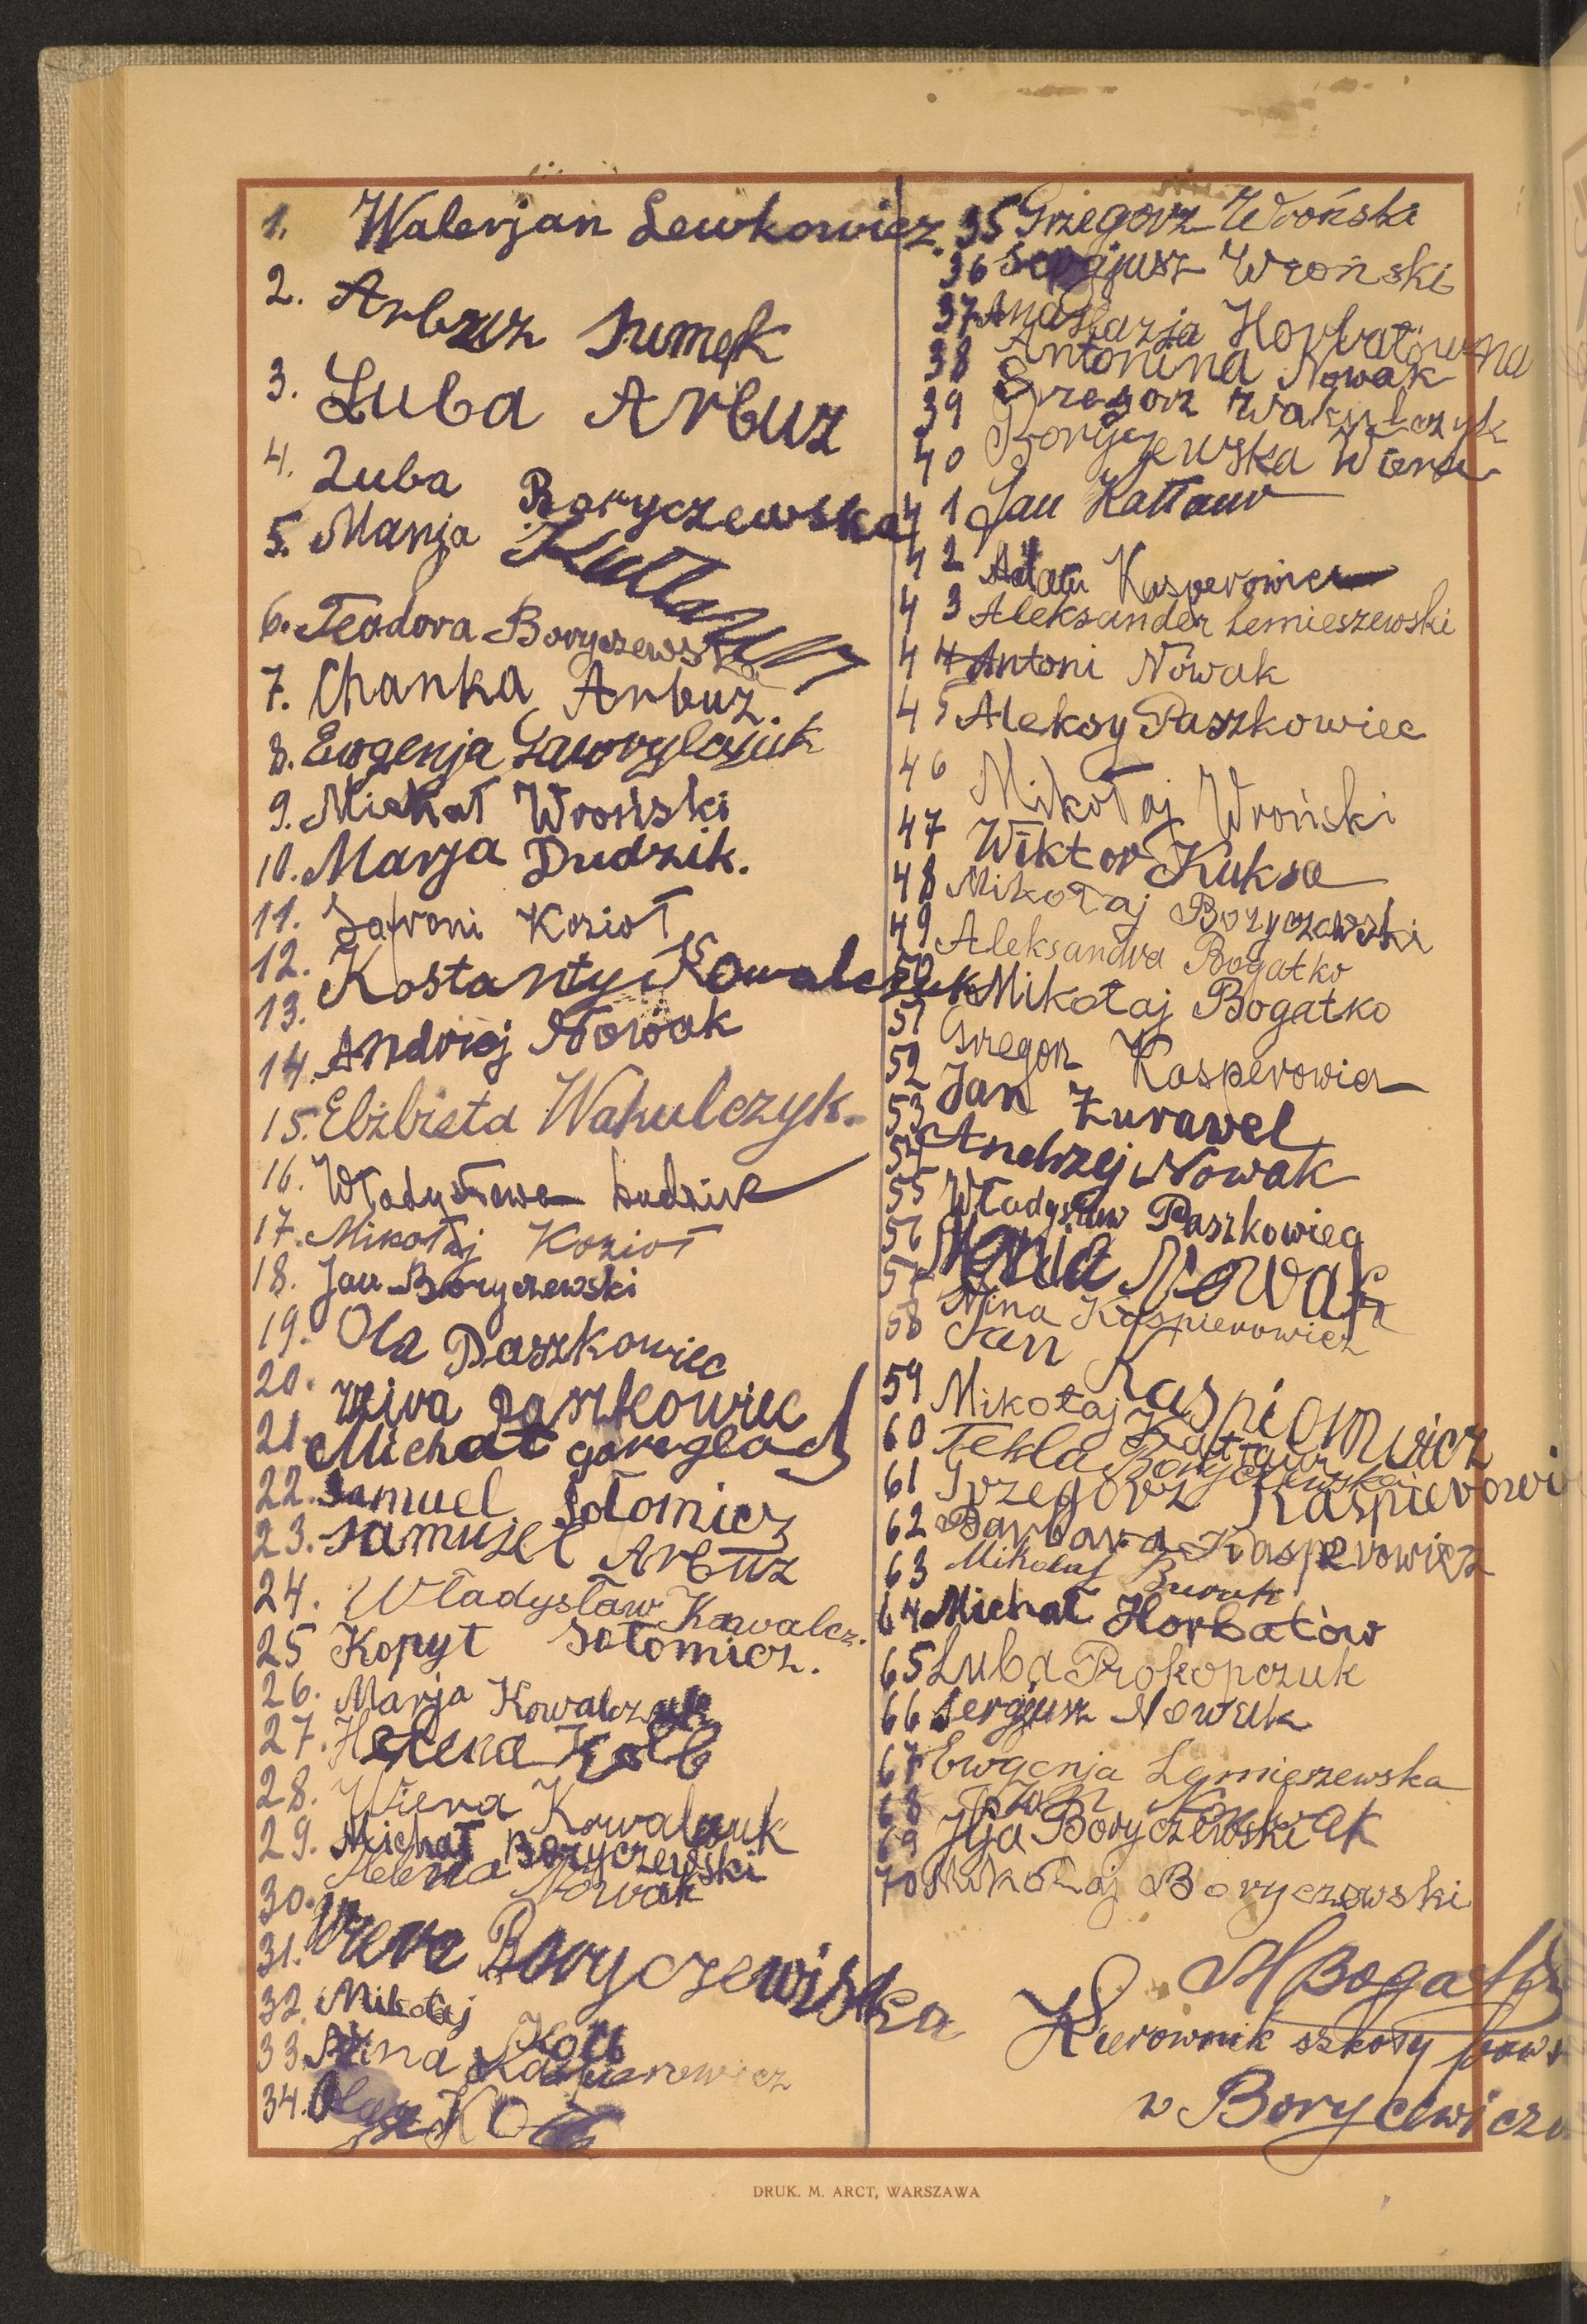 1. Walerjan Lewkowicz.
2. Arbuz Sumek
3. Luba Arbuz
4. Luba Boryczewska
5. Manja
6. Teodora Boryczewska
7. Chanka Arbuz.
8. Ewgenja
9. Michał Wroński
10. Marja Dudzik.
11. Safroni Kozioł
12. Kostanty Kowalczuk
13.
14. Andrzej Nowak
15. Elżbieta Wakulczyk.
16. Władysława Dudzik
17. Mikołaj Kozioł
18. Jan Boryczewski
19. Ola Paszkowiec
20. Wiera Paszkowiec
21. Michał
22. Samuel Sołomicz
23. Samujel Arbuz
24. Władysław Kowalcz.
25 Kopyt Sołomicz.
26. Marja Kowalczuk
27. Helena Kołb
28. Wiera Kowalczuk
29. Michał Boryczewski
30. Helena Nowak
31. Wera Boryczewiska
32. Mikołaj
33. Nina Kasperowicz
34. Olga
35 Grzegorz Wroński
36 Sergjusz Wroński
37 Anastazja Horbatówna
38 Antonina Nowak
39 Grzegorz Wakulczyk
40 Boryczewska Wiera
41 Jan Kałłaur
42 Adam Kasperowicz
43 Aleksander Lemieszewski
44 Antoni Nowak
45 Aleksy Paszkowiec
46 Mikołaj Wroński
47 Wiktor Kuksa
48 Mikołaj Boryczewski
49 Aleksandra Bogatko
50 Mikołaj Bogatko
51 Grzegorz Kasperowicz
52 Jan Żurawel
53
54 Andrzej Nowak
55 Władysław Paszkowiec
56 Mania Nowak
57 Nina Kaspierowicz
58 Jan Kaspierowicz
59 Mikołaj Kałłaur
60 Tekla Boryczewska
61 Grzegorz Kaspierowi
62 Barbara Kasperowicz
63 Mikołaj Buruk
64 Michał Horbatów
65 Luba Prokopczuk
66 Sergjusz Nowak
67 Ewgenja Lemieszewska
68 Jan Nowak
69 Ilja Boryczewski
70 Mikołaj Boryczewski
Kierownik szkoły pows
w Borycewicza
DRUK. M. ARCT, WARSZAWA